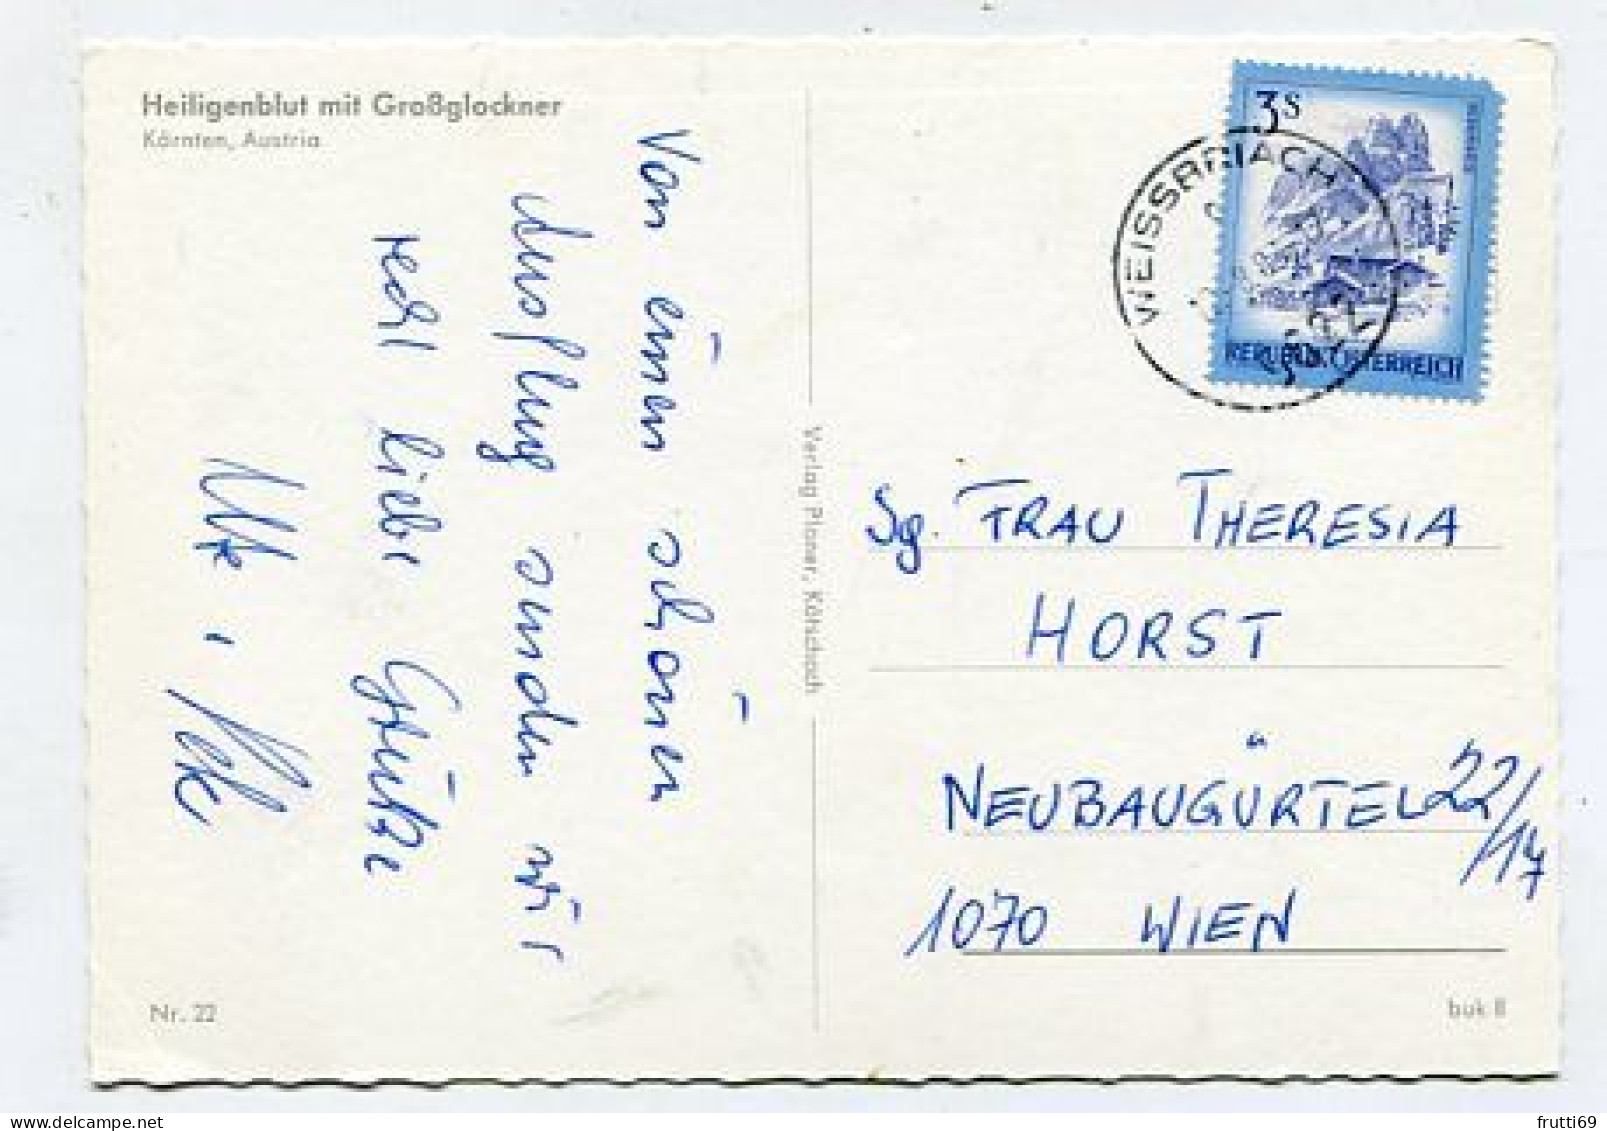 Heiligenblut mit Großglockner
Kärnten, Austria
Von einem schönen
Ausflug senden wir
recht liebe Grüße
Nr. 22
Verlag Ploner, Kötschach
3 S
REPUBLIK ÖSTERREICH
WEISSBRIACH
Sg. FRAU THERESIA
HORST
NEUBAUGÜRTEL 22/17
1070 WIEN
buk 8
frutti69